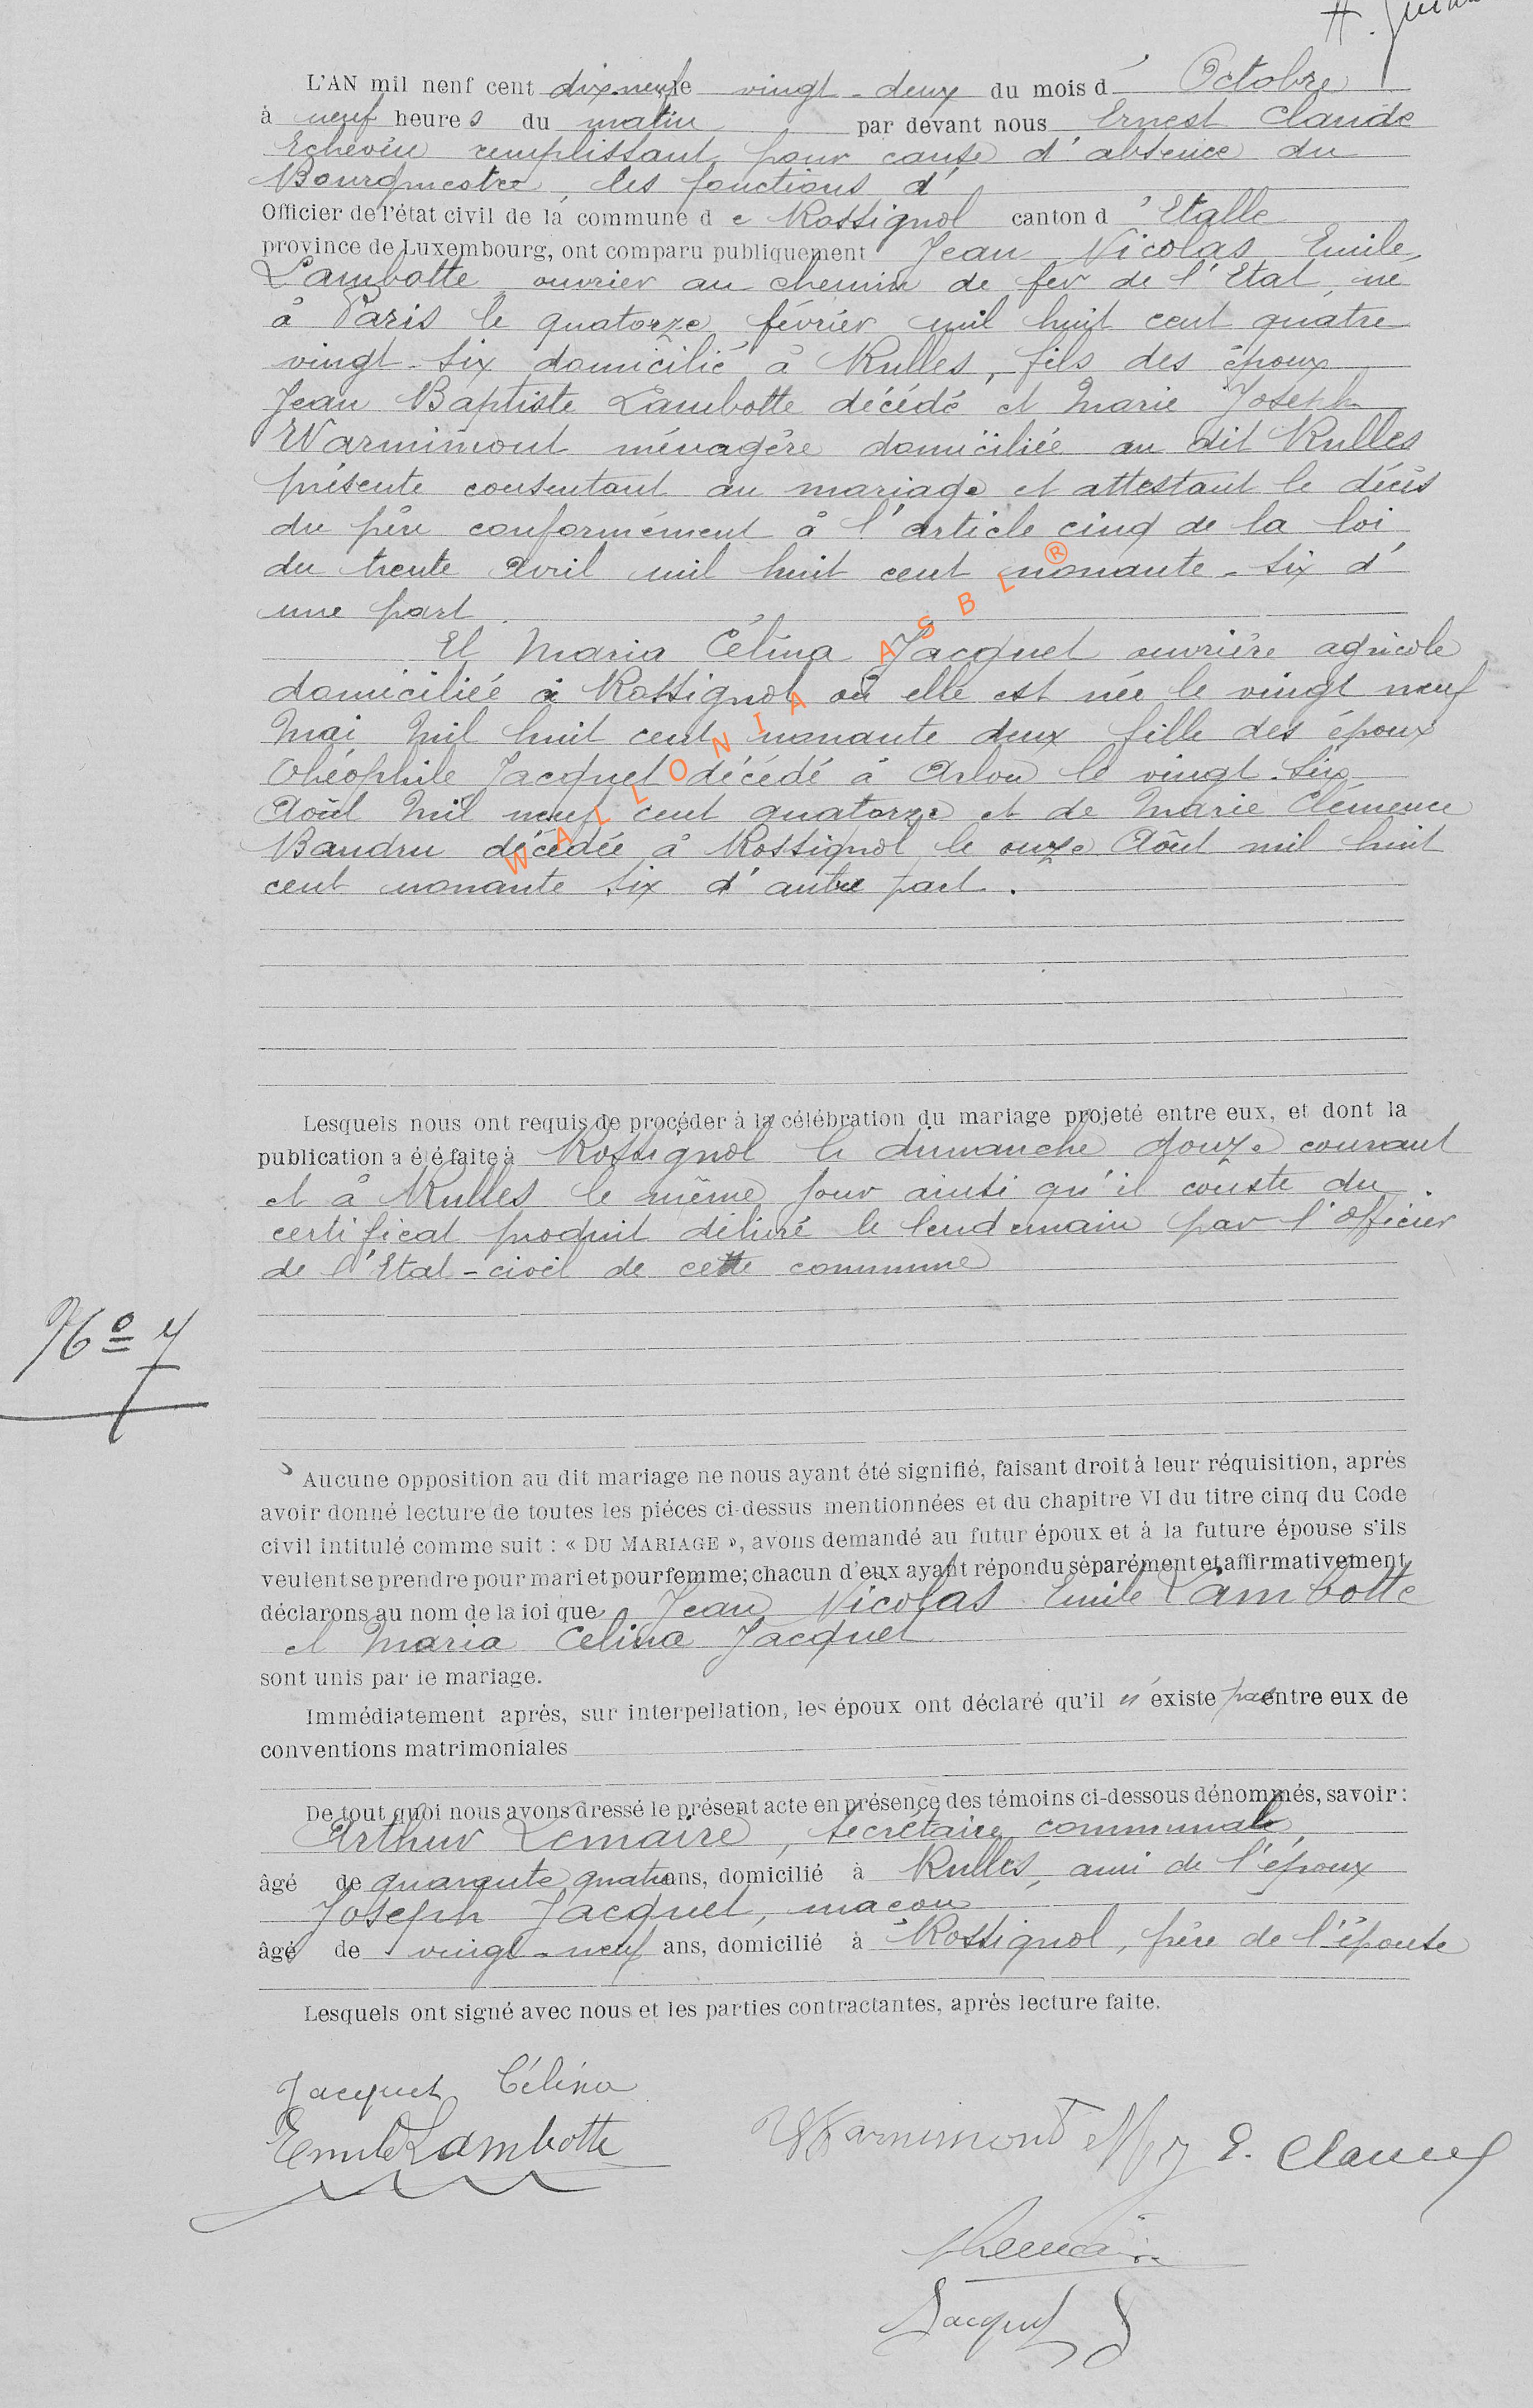 H.
L'AN mil neuf cent dix-neuf le vingt-deux du mois d' Octobre
à neuf heures du matin par devant nous Ernest Claude
Echevin remplissant pour cause d'absence du
Bourgmestre, les fonctions d'
Officier de l'état civil de la commune de Rossignol canton d'Etalle
province de Luxembourg, ont comparu publiquement Jean Nicolas Emile
Lambotte ouvrier au chemin de fer de l'Etat, né
à Paris le quatorze février mil huit cent quatre
vingt-six domicilié à Rulles, fils des époux
Jean Baptiste Lambotte décédé et Marie Joseph
Warnimont ménagère domiciliée au dit Rulles
présente consentant au mariage et attestant le décès
du père conformément à l'article cinq de la loi
du trente Avril mil huit cent nonante-six d'
une part.
Et Maria Célina Jacquet ouvrière agricole
domiciliée à Rossignol où elle est née le vingt neuf
Mai mil huit cent nonante deux fille des époux
Théophile Jacquet décédé à Arlon le vingt-six
Août mil neuf cent quatorze et de Marie Clémence
Baudru décédée à Rossignol le onze Août mil huit
cent nonante six d'autre part.
WALLONIA ASBL ®
Lesquels nous ont requis de procéder à la célébration du mariage projeté entre eux, et dont la
publication a été faite à Rossignol le dimanche douze courant
et à Rulles le même jour ainsi qu'il conste du
certificat produit délivré le lendemain par l'Officier
de l'Etat-civil de cette commune
No 7
Aucune opposition au dit mariage ne nous ayant été signifié, faisant droit à leur réquisition, après
avoir donné lecture de toutes les piéces ci-dessus mentionnées et du chapitre VI du titre cinq du Code
civil intitulé comme suit : « DU MARIAGE », avons demandé au futur époux et à la future épouse s'ils
veulent se prendre pour mari et pour femme; chacun d'eux ayant répondu séparément et affirmativement,
déclarons au nom de la loi que Jean Nicolas Emile Lambotte
et Maria Celina Jacquet
sont unis par le mariage.
Immédiatement après, sur interpellation, les époux ont déclaré qu'il n'existe pas entre eux de
conventions matrimoniales
De tout quoi nous avons dressé le présent acte en présence des témoins ci-dessous dénommés, savoir :
Arthur Lemaire, secrétaire communale,
âgé de quarante quatre ans, domicilié à Rulles, ami de l'époux
Joseph Jacquet, maçon
âgé de vingt-neuf ans, domicilié à Rossignol, frère de l'épouse
Lesquels ont signé avec nous et les parties contractantes, après lecture faite.
Jacquet Célina
Emile Lambotte
Warnimont M J E. Claude
ALemaire
Jacquet J